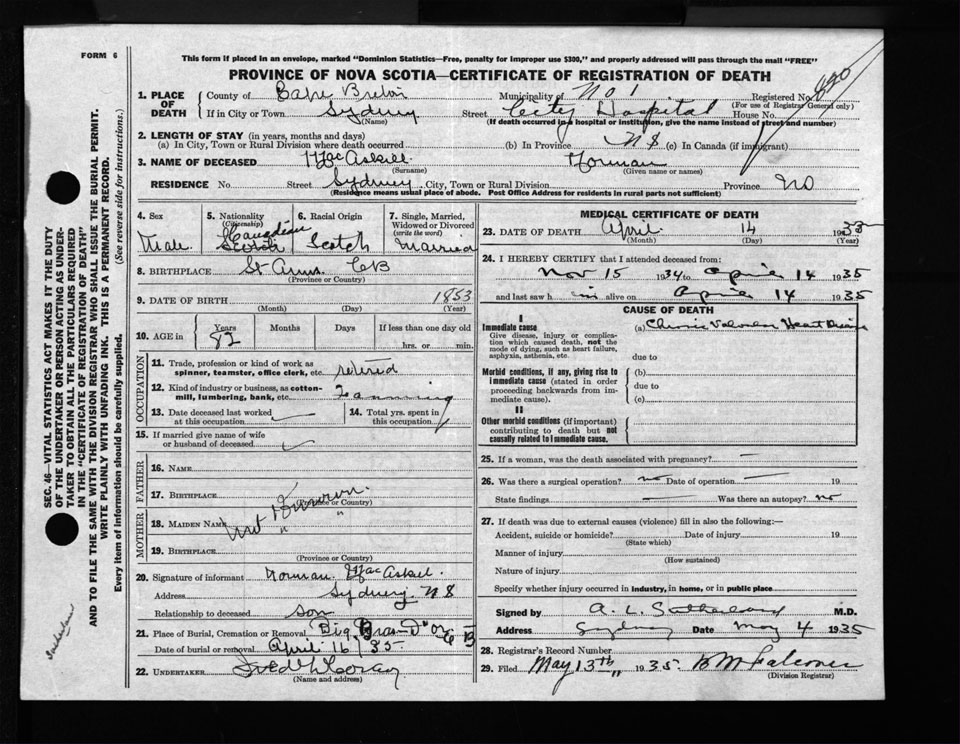 FORM 6
This form if placed in an envelope, marked "Dominion Statistics—Free, penalty for improper use $300," and properly addressed will pass through the mail "FREE"
PROVINCE OF NOVA SCOTIA—CERTIFICATE OF REGISTRATION OF DEATH
1. PLACE OF DEATH
County of Cape Breton Municipality of No 1 Registered No.
(For use of Registrar General only)
If in City or Town Sydney Street City Hospital House No.
(Name) (If death occurred in a hospital or institution, give the name instead of street and number)
2. LENGTH OF STAY (in years, months and days)
(a) In City, Town or Rural Division where death occurred (b) In Province NS (c) In Canada (if immigrant)
3. NAME OF DECEASED MacAskill Norman
(Surname) (Given name or names)
RESIDENCE No. Street Sydney City, Town or Rural Division Province
(Residence means usual place of abode. Post Office Address for residents in rural parts not sufficient)
4. Sex
Male
5. Nationality (Citizenship)
Canadian
Scotch
6. Racial Origin
Scotch
7. Single, Married, Widowed or Divorced (write the word)
Married
8. BIRTHPLACE St Anns CB
(Province or Country)
9. DATE OF BIRTH 1853
(Month) (Day) (Year)
10. AGE in Years Months Days If less than one day old
82 hrs. or min.
OCCUPATION
11. Trade, profession or kind of work as spinner, teamster, office clerk, etc. retired
12. Kind of industry or business, as cotton-mill, lumbering, bank, etc.
13. Date deceased last worked at this occupation
14. Total yrs. spent in this occupation
15. If married give name of wife or husband of deceased
FATHER
16. NAME
17. BIRTHPLACE
(Province or Country)
MOTHER
18. MAIDEN NAME
19. BIRTHPLACE
(Province or Country)
20. Signature of informant Norman MacAskil
Address Sydney. NS
Relationship to deceased son
21. Place of Burial, Cremation or Removal Big Bras D'Or CB
Date of burial or removal April 16/35
22. UNDERTAKER
(Name and address)
MEDICAL CERTIFICATE OF DEATH
23. DATE OF DEATH April 14 1935
(Month) (Day) (Year)
24. I HEREBY CERTIFY that I attended deceased from:
Nov 15 1934 to April 14 1935
and last saw h im alive on April 14 1935
CAUSE OF DEATH
I
Immediate cause
Give disease, injury or complication which caused death, not the mode of dying, such as heart failure, asphyxia, asthenia, etc.
(a) Chronic Valvular Heart Disease
due to
Morbid conditions, if any, giving rise to immediate cause (stated in order proceeding backwards from immediate cause).
(b)
due to
(c)
II
Other morbid conditions (if important) contributing to death but not causally related to immediate cause.
25. If a woman, was the death associated with pregnancy? —
26. Was there a surgical operation? no Date of operation — 19
State findings — Was there an autopsy? no
27. If death was due to external causes (violence) fill in also the following:—
Accident, suicide or homicide? Date of injury 19
(State which)
Manner of injury
(How sustained)
Nature of injury
Specify whether injury occurred in industry, in home, or in public place
Signed by A. L. Sutherland M.D.
Address Sydney Date May 4 1935
28. Registrar's Record Number
29. Filed May 13th 1935
(Division Registrar)
SEC. 46—VITAL STATISTICS ACT MAKES IT THE DUTY
OF THE UNDERTAKER OR PERSON ACTING AS UNDERTAKER TO OBTAIN ALL THE PARTICULARS REQUIRED
IN THE "CERTIFICATE OF REGISTRATION OF DEATH"
AND TO FILE THE SAME WITH THE DIVISION REGISTRAR WHO SHALL ISSUE THE BURIAL PERMIT.
WRITE PLAINLY WITH UNFADING INK. THIS IS A PERMANENT RECORD.
Every item of information should be carefully supplied. (See reverse side for instructions.)